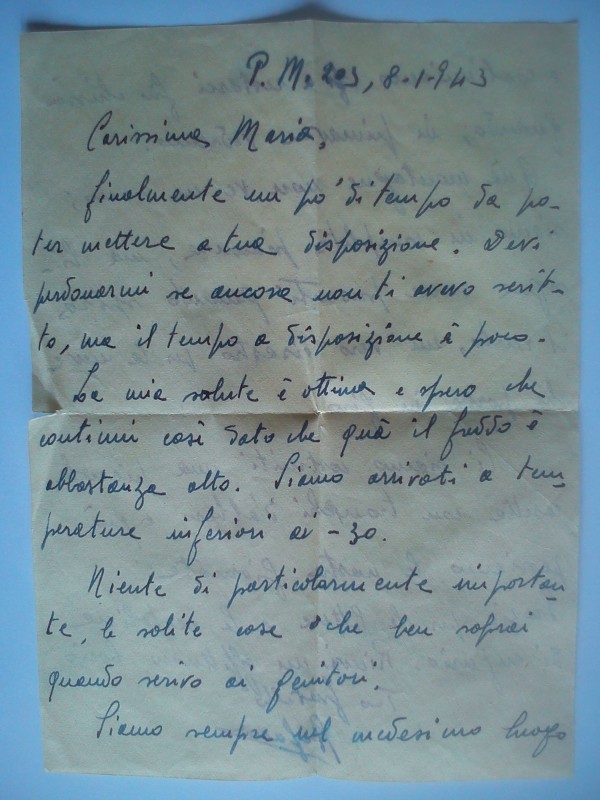 P. M. 203, 8-1-943
Carissima Maria,
finalmente un po' di tempo da po-
ter mettere a tua disposizione. Devi
perdonarmi se ancora non ti avevo scrit-
to, ma il tempo a disposizione è poco.
La mia salute è ottima e spero che
continui così dato che quà il freddo è
abbastanza alto. Siamo arrivati a tem-
perature inferiori ai -30.
Niente di particolarmente importan-
te, le solite cose che ben saprai
quando scrivo ai genitori.
Siamo sempre nel medesimo luogo